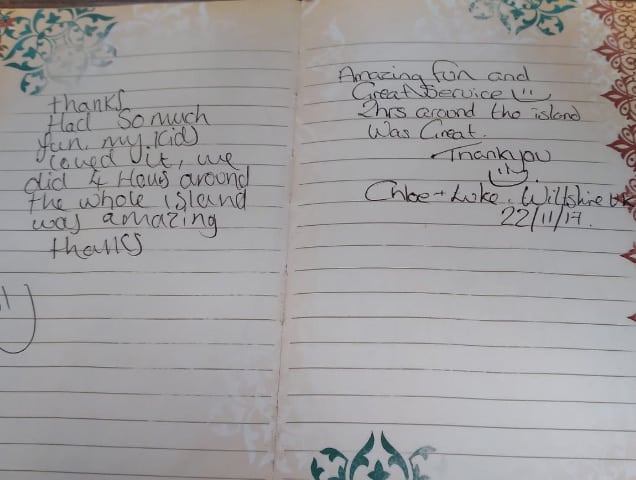 thanks
Had So much
fun, my kids
loved it, we
did 4 Hours around
the whole island
was amazing
thanks
Amazing fun and
Great Service
2hrs around the island
Was Great.
Thankyou
Chloe + Luke. Wiltshire UK
22/11/17.